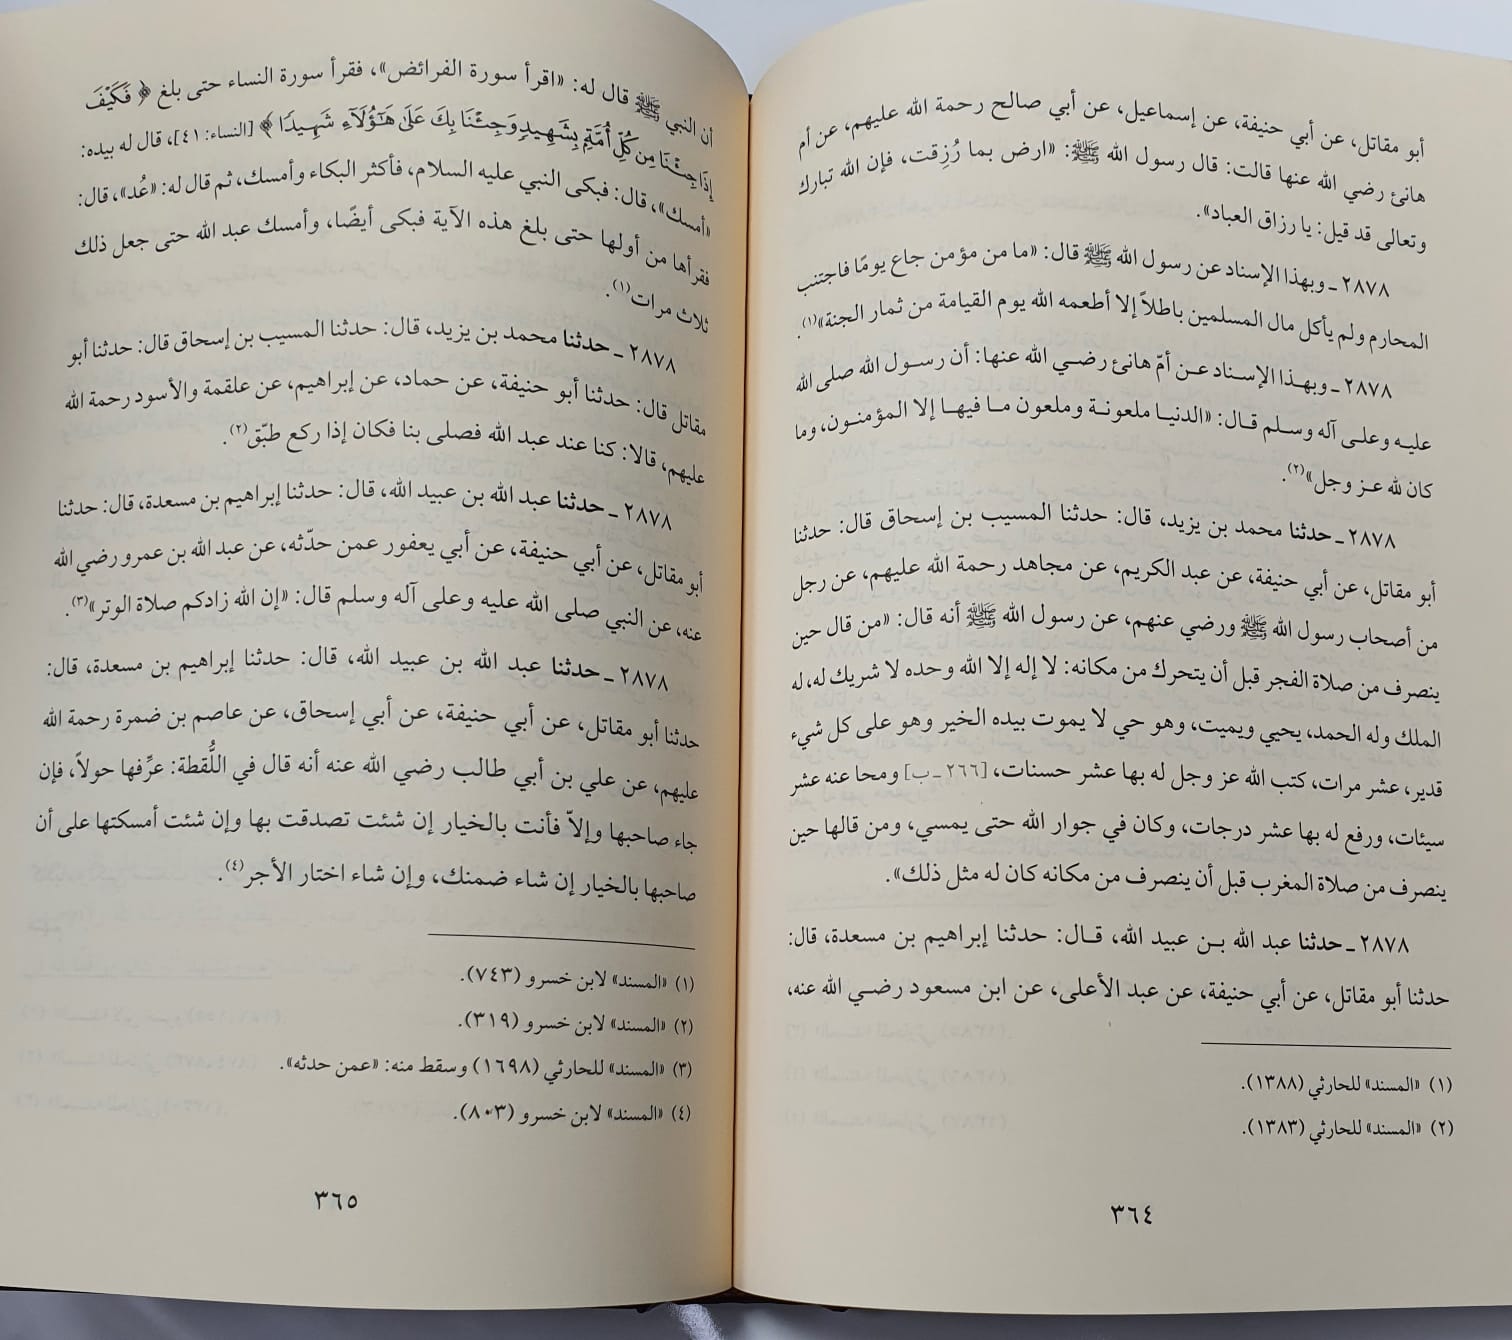 أبو مقاتل، عن أبي حنيفة، عن إسماعيل، عن أبي صالح رحمة الله عليهم، عن أم
هانئ رضي الله عنها قالت: قال رسول الله ﷺ: «ارض بما رُزِقت، فإن الله تبارك
وتعالى قد قيل: يا رزاق العباد».
٢٨٧٨ ـ وبهذا الإسناد عن رسول الله ﷺ قال: «ما من مؤمن جاع يومًا فاجتنب
المحارم ولم يأكل مال المسلمين باطلاً إلا أطعمه الله يوم القيامة من ثمار الجنة»(١).
٢٨٧٨ ـ وبهـذا الإسـناد عـن أمّ هانئ رضـي الله عنها: أن رسـول الله صلى الله
عليـه وعلـى آله وسـلم قـال: «الدنيـا ملعونـة وملعون مـا فيهـا إلا المؤمنـون، وما
كان لله عـز وجل»(٢).
٢٨٧٨ ـ حدثنا محمد بن يزيد، قال: حدثنا المسيب بن إسحاق قال: حدثنا
أبو مقاتل، عن أبي حنيفة، عن عبد الكريم، عن مجاهد رحمة الله عليهم، عن رجل
من أصحاب رسول الله ﷺ ورضي عنهم، عن رسول الله ﷺ أنه قال: «من قال حين
ينصرف من صلاة الفجر قبل أن يتحرك من مكانه: لا إله إلا الله وحده لا شريك له، له
الملك وله الحمد، يحيي ويميت، وهو حي لا يموت بيده الخير وهو على كل شيء
قدير، عشر مرات، كتب الله عز وجل له بها عشر حسنات، [٢٦٦ ـ ب] ومحا عنه عشر
سيئات، ورفع له بها عشر درجات، وكان في جوار الله حتى يمسي، ومن قالها حين
ينصرف من صلاة المغرب قبل أن ينصرف من مكانه كان له مثل ذلك».
٢٨٧٨ ـ حدثنا عبد الله بـن عبيد الله، قـال: حدثنا إبراهيم بن مسعدة، قال:
حدثنا أبو مقاتل، عن أبي حنيفة، عن عبد الأعلى، عن ابن مسعود رضـي الله عنه،
(١) «المسند» للحارثي (١٣٨٨).
(٢) «المسند» للحارثي (١٣٨٣).
٣٦٤
أن النبي ﷺ قال له: «اقرأ سورة الفرائض»، فقرأ سورة النساء حتى بلغ ﴿فَكَيْفَ
إِذَا جِئْنَا مِن كُلِّ أُمَّةٍ بِشَهِيدٍ وَجِئْنَا بِكَ عَلَى هَٰٓؤُلَآءِ شَهِيدًا﴾ [النساء: ٤١]، قال له بيده:
«أمسك»، قال: فبكى النبي عليه السلام، فأكثر البكاء وأمسك، ثم قال له: «عُد»، قال:
فقرأها من أولها حتى بلغ هذه الآية فبكى أيضًا، وأمسك عبد الله حتى جعل ذلك
ثلاث مرات(١).
٢٨٧٨ ـ حدثنا محمد بن يزيد، قال: حدثنا المسيب بن إسحاق قال: حدثنا أبو
مقاتل قال: حدثنا أبو حنيفة، عن حماد، عن إبراهيم، عن علقمة والأسود رحمة الله
عليهم، قالا: كنا عند عبد الله فصلى بنا فكان إذا ركع طبّق(٢).
٢٨٧٨ ـ حدثنا عبد الله بن عبيد الله، قال: حدثنا إبراهيم بن مسعدة، قال: حدثنا
أبو مقاتل، عن أبي حنيفة، عن أبي يعفور عمن حدّثه، عن عبد الله بن عمرو رضي الله
عنه، عن النبي صلى الله عليه وعلى آله وسلم قال: «إن الله زادكم صلاة الوتر»(٣).
٢٨٧٨ ـ حدثنا عبد الله بن عبيد الله، قال: حدثنا إبراهيم بن مسعدة، قال:
حدثنا أبو مقاتل، عن أبي حنيفة، عن أبي إسحاق، عن عاصم بن ضمرة رحمة الله
عليهم، عن علي بن أبي طالب رضي الله عنه أنه قال في اللُّقطة: عرِّفها حولاً، فإن
جاء صاحبها وإلاّ فأنت بالخيار إن شئت تصدقت بها وإن شئت أمسكتها على أن
صاحبها بالخيار إن شاء ضمنك، وإن شاء اختار الأجر(٤).
(١) «المسند» لابن خسرو (٧٤٣).
(٢) «المسند» لابن خسرو (٣١٩).
(٣) «المسند» للحارثي (١٦٩٨) وسقط منه: «عمن حدثه».
(٤) «المسند» لابن خسرو (٨٠٣).
٣٦٥